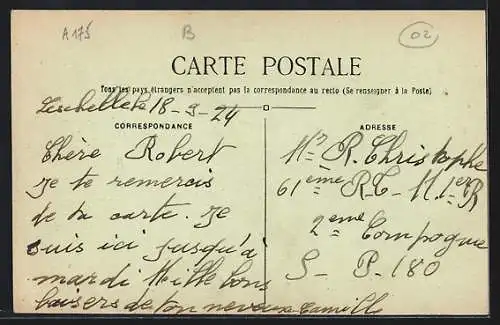 A175
B
02
CARTE POSTALE
Tous les pays étrangers n'acceptent pas la correspondance au recto (Se renseigner à la Poste)
Leschelle le 18-9-24
CORRESPONDANCE
ADRESSE
Chère Robert
Je te remercis
de ta carte. Je
suis ici jusqu'a
mardi Mille bons
baisers de ton neveux Camille
Mr R. Christophe
61eme R. C- M. 1er B
2eme Compagnie
S- P- 180